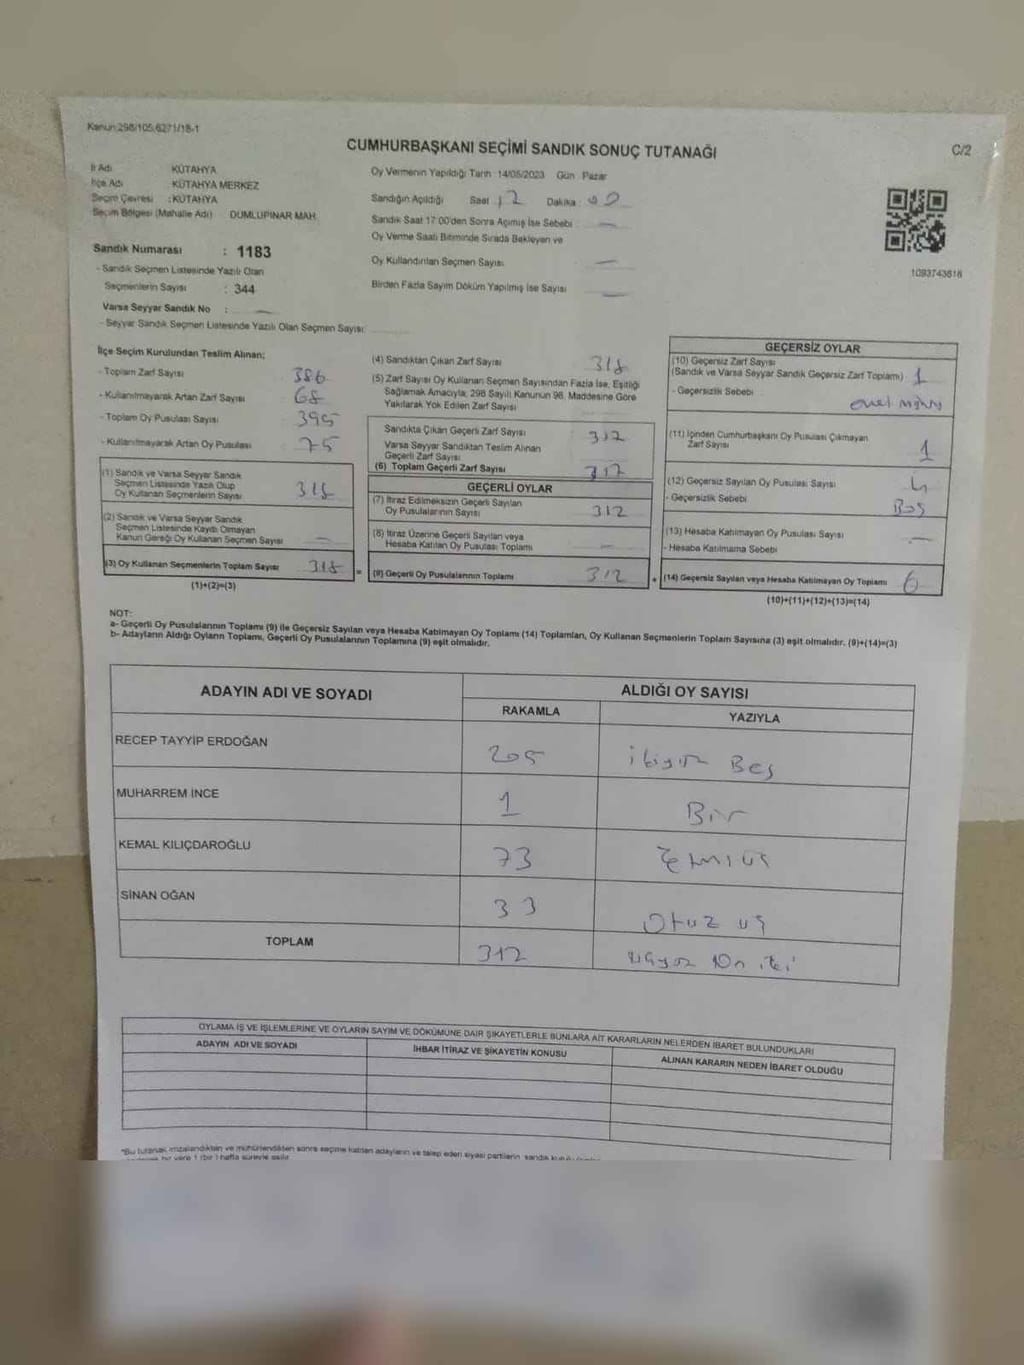 Kanun:298/105,6271/18-1
CUMHURBAŞKANI SEÇİMİ SANDIK SONUÇ TUTANAĞI
C/2
İl Adı KÜTAHYA
İlçe Adı : KÜTAHYA MERKEZ
Seçim Çevresi : KÜTAHYA
Seçim Bölgesi (Mahalle Adı) DUMLUPINAR MAH.
Sandık Numarası : 1183
- Sandık Seçmen Listesinde Yazılı Olan
Seçmenlerin Sayısı : 344
Varsa Seyyar Sandık No : —
- Seyyar Sandık Seçmen Listesinde Yazılı Olan Seçmen Sayısı:
Oy Vermenin Yapıldığı Tarih 14/05/2023 Gün Pazar
Sandığın Açıldığı Saat Dakika :
Sandık Saat 17.00'den Sonra Açılmış İse Sebebi —
Oy Verme Saati Bitiminde Sırada Bekleyen ve
Oy Kullandırılan Seçmen Sayısı —
Birden Fazla Sayım Döküm Yapılmış İse Sayısı —
1093743818
İlçe Seçim Kurulundan Teslim Alınan;
- Toplam Zarf Sayısı 386
- Kullanılmayarak Artan Zarf Sayısı 68
- Toplam Oy Pusulası Sayısı 395
- Kullanılmayarak Artan Oy Pusulası 75
(1) Sandık ve Varsa Seyyar Sandık
Seçmen Listesinde Yazılı Olup
Oy Kullanan Seçmenlerin Sayısı 318
(2) Sandık ve Varsa Seyyar Sandık
Seçmen Listesinde Kaydı Olmayan
Kanun Gereği Oy Kullanan Seçmen Sayısı —
(3) Oy Kullanan Seçmenlerin Toplam Sayısı 318
(1)+(2)=(3)
(4) Sandıktan Çıkan Zarf Sayısı 318
(5) Zarf Sayısı Oy Kullanan Seçmen Sayısından Fazla İse, Eşitliği
Sağlamak Amacıyla, 298 Sayılı Kanunun 98. Maddesine Göre
Yakılarak Yok Edilen Zarf Sayısı
Sandıkta Çıkan Geçerli Zarf Sayısı 312
Varsa Seyyar Sandıktan Teslim Alınan
Geçerli Zarf Sayısı
(6) Toplam Geçerli Zarf Sayısı 312
GEÇERLİ OYLAR
(7) İtiraz Edilmeksizin Geçerli Sayılan
Oy Pusulalarının Sayısı 312
(8) İtiraz Üzerine Geçerli Sayılan veya
Hesaba Katılan Oy Pusulası Toplamı —
= (9) Geçerli Oy Pusulalarının Toplamı 312
GEÇERSİZ OYLAR
(10) Geçersiz Zarf Sayısı
(Sandık ve Varsa Seyyar Sandık Geçersiz Zarf Toplamı) 1
- Geçersizlik Sebebi
(11) İçinden Cumhurbaşkanı Oy Pusulası Çıkmayan
Zarf Sayısı 1
(12) Geçersiz Sayılan Oy Pusulası Sayısı 4
- Geçersizlik Sebebi Boş
(13) Hesaba Katılmayan Oy Pusulası Sayısı —
- Hesaba Katılmama Sebebi
+ (14) Geçersiz Sayılan veya Hesaba Katılmayan Oy Toplamı 6
(10)+(11)+(12)+(13)=(14)
NOT:
a- Geçerli Oy Pusulalarının Toplamı (9) ile Geçersiz Sayılan veya Hesaba Katılmayan Oy Toplamı (14) Toplamları, Oy Kullanan Seçmenlerin Toplam Sayısına (3) eşit olmalıdır. (9)+(14)=(3)
b- Adayların Aldığı Oyların Toplamı, Geçerli Oy Pusulalarının Toplamına (9) eşit olmalıdır.
ADAYIN ADI VE SOYADI ALDIĞI OY SAYISI
RAKAMLA YAZIYLA
RECEP TAYYİP ERDOĞAN 205 ikiyüz Beş
MUHARREM İNCE 1 Bir
KEMAL KILIÇDAROĞLU 73
SİNAN OĞAN 33 Otuz üç
TOPLAM 312 On iki
OYLAMA İŞ VE İŞLEMLERİNE VE OYLARIN SAYIM VE DÖKÜMÜNE DAİR ŞİKAYETLERLE BUNLARA AİT KARARLARIN NELERDEN İBARET BULUNDUKLARI
ADAYIN ADI VE SOYADI İHBAR İTİRAZ VE ŞİKAYETİN KONUSU ALINAN KARARIN NEDEN İBARET OLDUĞU
*Bu tutanak imzalandıktan ve mühürlendikten sonra seçime katılan adayların ve talep eden siyasi partilerin sandık